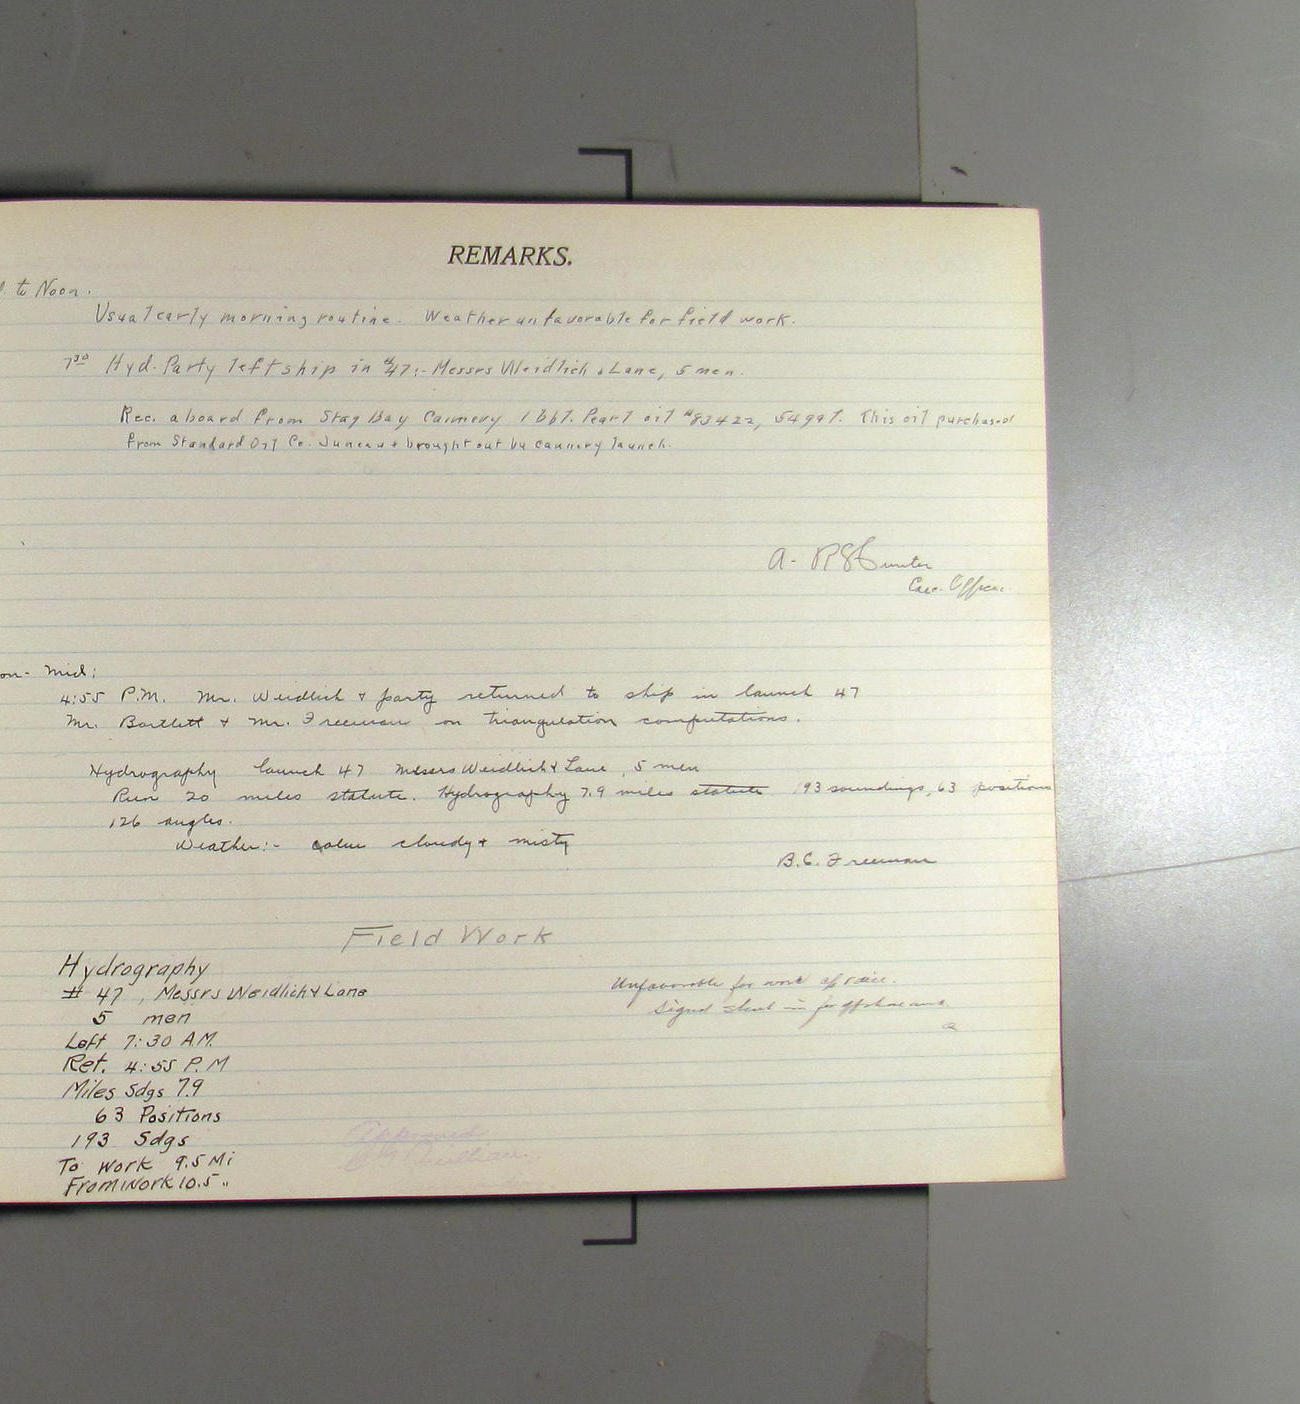 REMARKS.
to Noon.
Usual early morning routine. Weather unfavorable for field work.
7³⁰ Hyd. Party left ship in #47:- Messrs Weidlich & Lane, 5 men.
Rec. aboard from Stag Bay Cannery 1 bbl. Pearl oil #83422, 54 gal. This oil purchased
from Standard Oil Co. Juneau & brought out by cannery launch.
A.
Exec. Officer.
on- Mid:
4:55 P.M. Mr. Weidlich & party returned to ship in launch 47
Mr. Bartlett & Mr. Freeman on triangulation computations.
Hydrography launch 47 Messrs Weidlich & Lane, 5 men
Run 20 miles statute. Hydrography 7.9 miles statute 193 soundings, 63 positions
126 angles.
Weather:- calm cloudy & misty
B.C. Freeman
Field Work
Hydrography
# 47, Messrs Weidlich & Lane
5 men
Left 7:30 A.M.
Ret. 4:55 P.M
Miles Sdgs 7.9
63 Positions
193 Sdgs
To Work 9.5 Mi
From Work 10.5 "
Unfavorable for work
Signal in for offshore
Approved